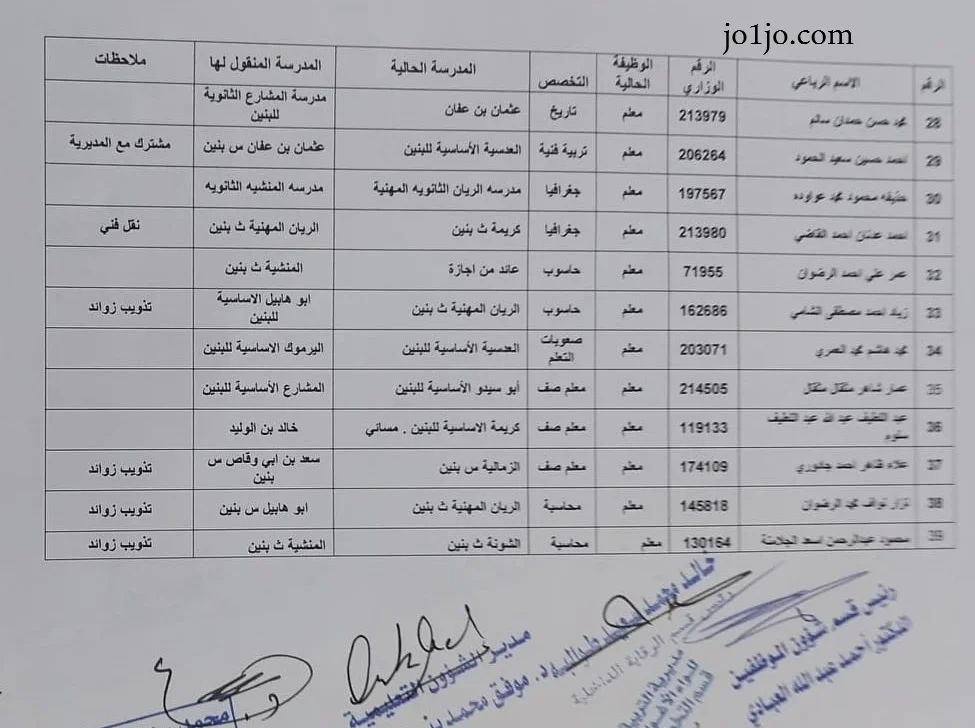 jo1jo.com
الرقم الاسم الرباعي الرقم الوزاري الوظيفة الحالية التخصص المدرسة الحالية المدرسة المنقول لها ملاحظات
28 محمد حسن حمدان سالم 213979 معلم تاريخ عثمان بن عفان مدرسة المشارع الثانوية للبنين
29 احمد حسين سعيد الحمود 206264 معلم تربية فنية العدسية الأساسية للبنين عثمان بن عفان س بنين مشترك مع المديرية
30 حذيفه محمود محمد عواوده 197567 معلم جغرافيا مدرسه الريان الثانويه المهنية مدرسه المنشيه الثانويه
31 احمد عدنان احمد القاضي 213980 معلم جغرافيا كريمة ث بنين الريان المهنية ث بنين نقل فني
32 عمر علي احمد الرضوان 71955 معلم حاسوب عائد من اجازة المنشية ث بنين
33 زياد احمد مصطفى الشامي 162686 معلم حاسوب الريان المهنية ث بنين ابو هابيل الاساسية للبنين تذويب زوائد
34 محمد هاشم محمد العمري 203071 معلم صعوبات التعلم العدسية الأساسية للبنين اليرموك الاساسية للبنين
35 عمار شاهر مثقال مثقال 214505 معلم معلم صف أبو سيدو الأساسية للبنين المشارع الأساسية للبنين
36 عبد اللطيف عبد الله عبد اللطيف سلوم 119133 معلم معلم صف كريمة الاساسية للبنين . مسائي خالد بن الوليد
37 علاء ظاهر احمد 174109 معلم معلم صف الزمالية س بنين سعد بن ابي وقاص س بنين تذويب زوائد
38 نزار نواف محمد الرضوان 145818 معلم محاسبة الريان المهنية ث بنين ابو هابيل س بنين تذويب زوائد
39 محمود عبدالرحمن اسعد 130164 معلم محاسبة الشونة ث بنين المنشية ث بنين تذويب زوائد
رئيس قسم شؤون الموظفين
الدكتور أحمد عبد الله العبادي
رئيس قسم الرقابة الداخلية
خالد محمد سعيد
مدير الشؤون التعليمية
د. موفق محمد
محمد